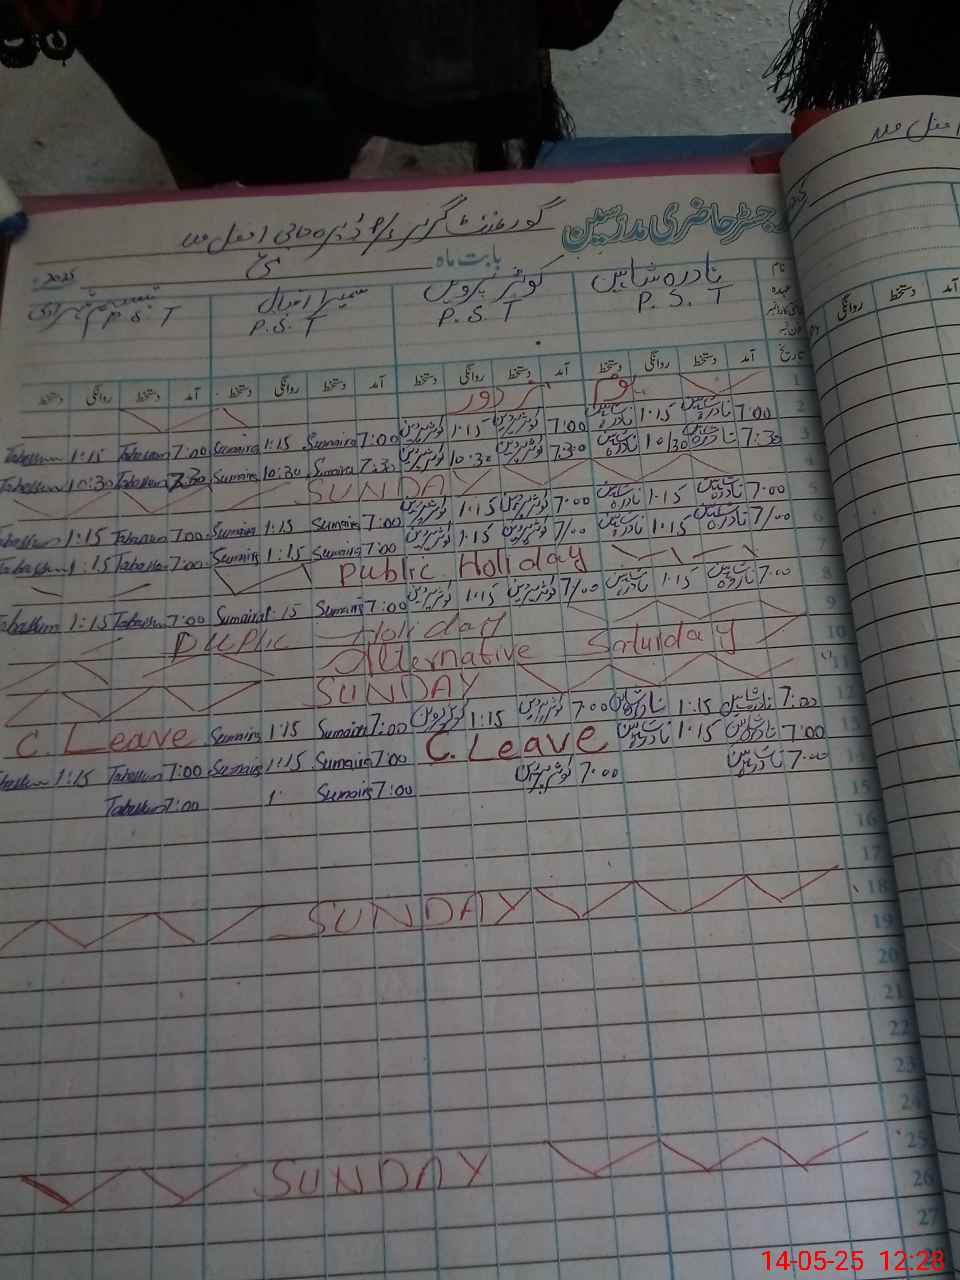 رجسٹر حاضری مدرسین
بابت ماہ مئی 2025
نادرہ شاہین کوثر پروین سمیرا اقبال
P.S.T P.S.T P.S.T P.S.T
نام
عہدہ
تاریخ آمد دستخط روانگی دستخط آمد دستخط روانگی دستخط آمد دستخط روانگی دستخط آمد دستخط روانگی دستخط
1
2 7:00 نادرہ شاہین 1:15 نادرہ شاہین 7:00 کوثر پروین 1:15 کوثر پروین 7:00 Sumaira 1:15 Sumaira 7:00 Tabassum 1:15 Tabassum
3 7:30 نادرہ شاہین 10/30 نادرہ شاہین 7:30 کوثر پروین 10:30 کوثر پروین 7:30 Sumaira 10:30 Sumaira 7:30 Tabassum 10:30 Tabassum
4 SUNDAY
5 7:00 نادرہ شاہین 1:15 نادرہ شاہین 7:00 کوثر پروین 1:15 کوثر پروین 7:00 Sumaira 1:15 Sumaira 7:00 Tabassum 1:15 Tabassum
6 7/00 نادرہ شاہین 1:15 نادرہ شاہین 7/00 کوثر پروین 1:15 کوثر پروین 7:00 Sumaira 1:15 Sumaira 7:00 Tabassum 1:15 Tabassum
7 Public Holiday
8 7:00 نادرہ شاہین 1:15 نادرہ شاہین 7/00 کوثر پروین 1:15 کوثر پروین 7:00 Sumaira 1:15 Sumaira 7:00 Tabassum 1:15 Tabassum
9 Holiday
10 Alternative Saturday
11 SUNDAY
12 7:00 نادرہ شاہین 1:15 نادرہ شاہین 7:00 کوثر پروین 1:15 کوثر پروین 7:00 Sumaira 1:15 Sumaira C. Leave
13 7:00 نادرہ شاہین 1:15 نادرہ شاہین C. Leave 7:00 Sumaira 1:15 Sumaira 7:00 Tabassum 1:15 Tabassum
14 7:00 نادرہ شاہین 7:00 کوثر پروین 7:00 Sumaira 1: 7:00 Tabassum
15
16
17
18 SUNDAY
19
20
21
22
23
24
25 SUNDAY
26
27
آمد
دستخط
روانگی
14-05-25 12:28